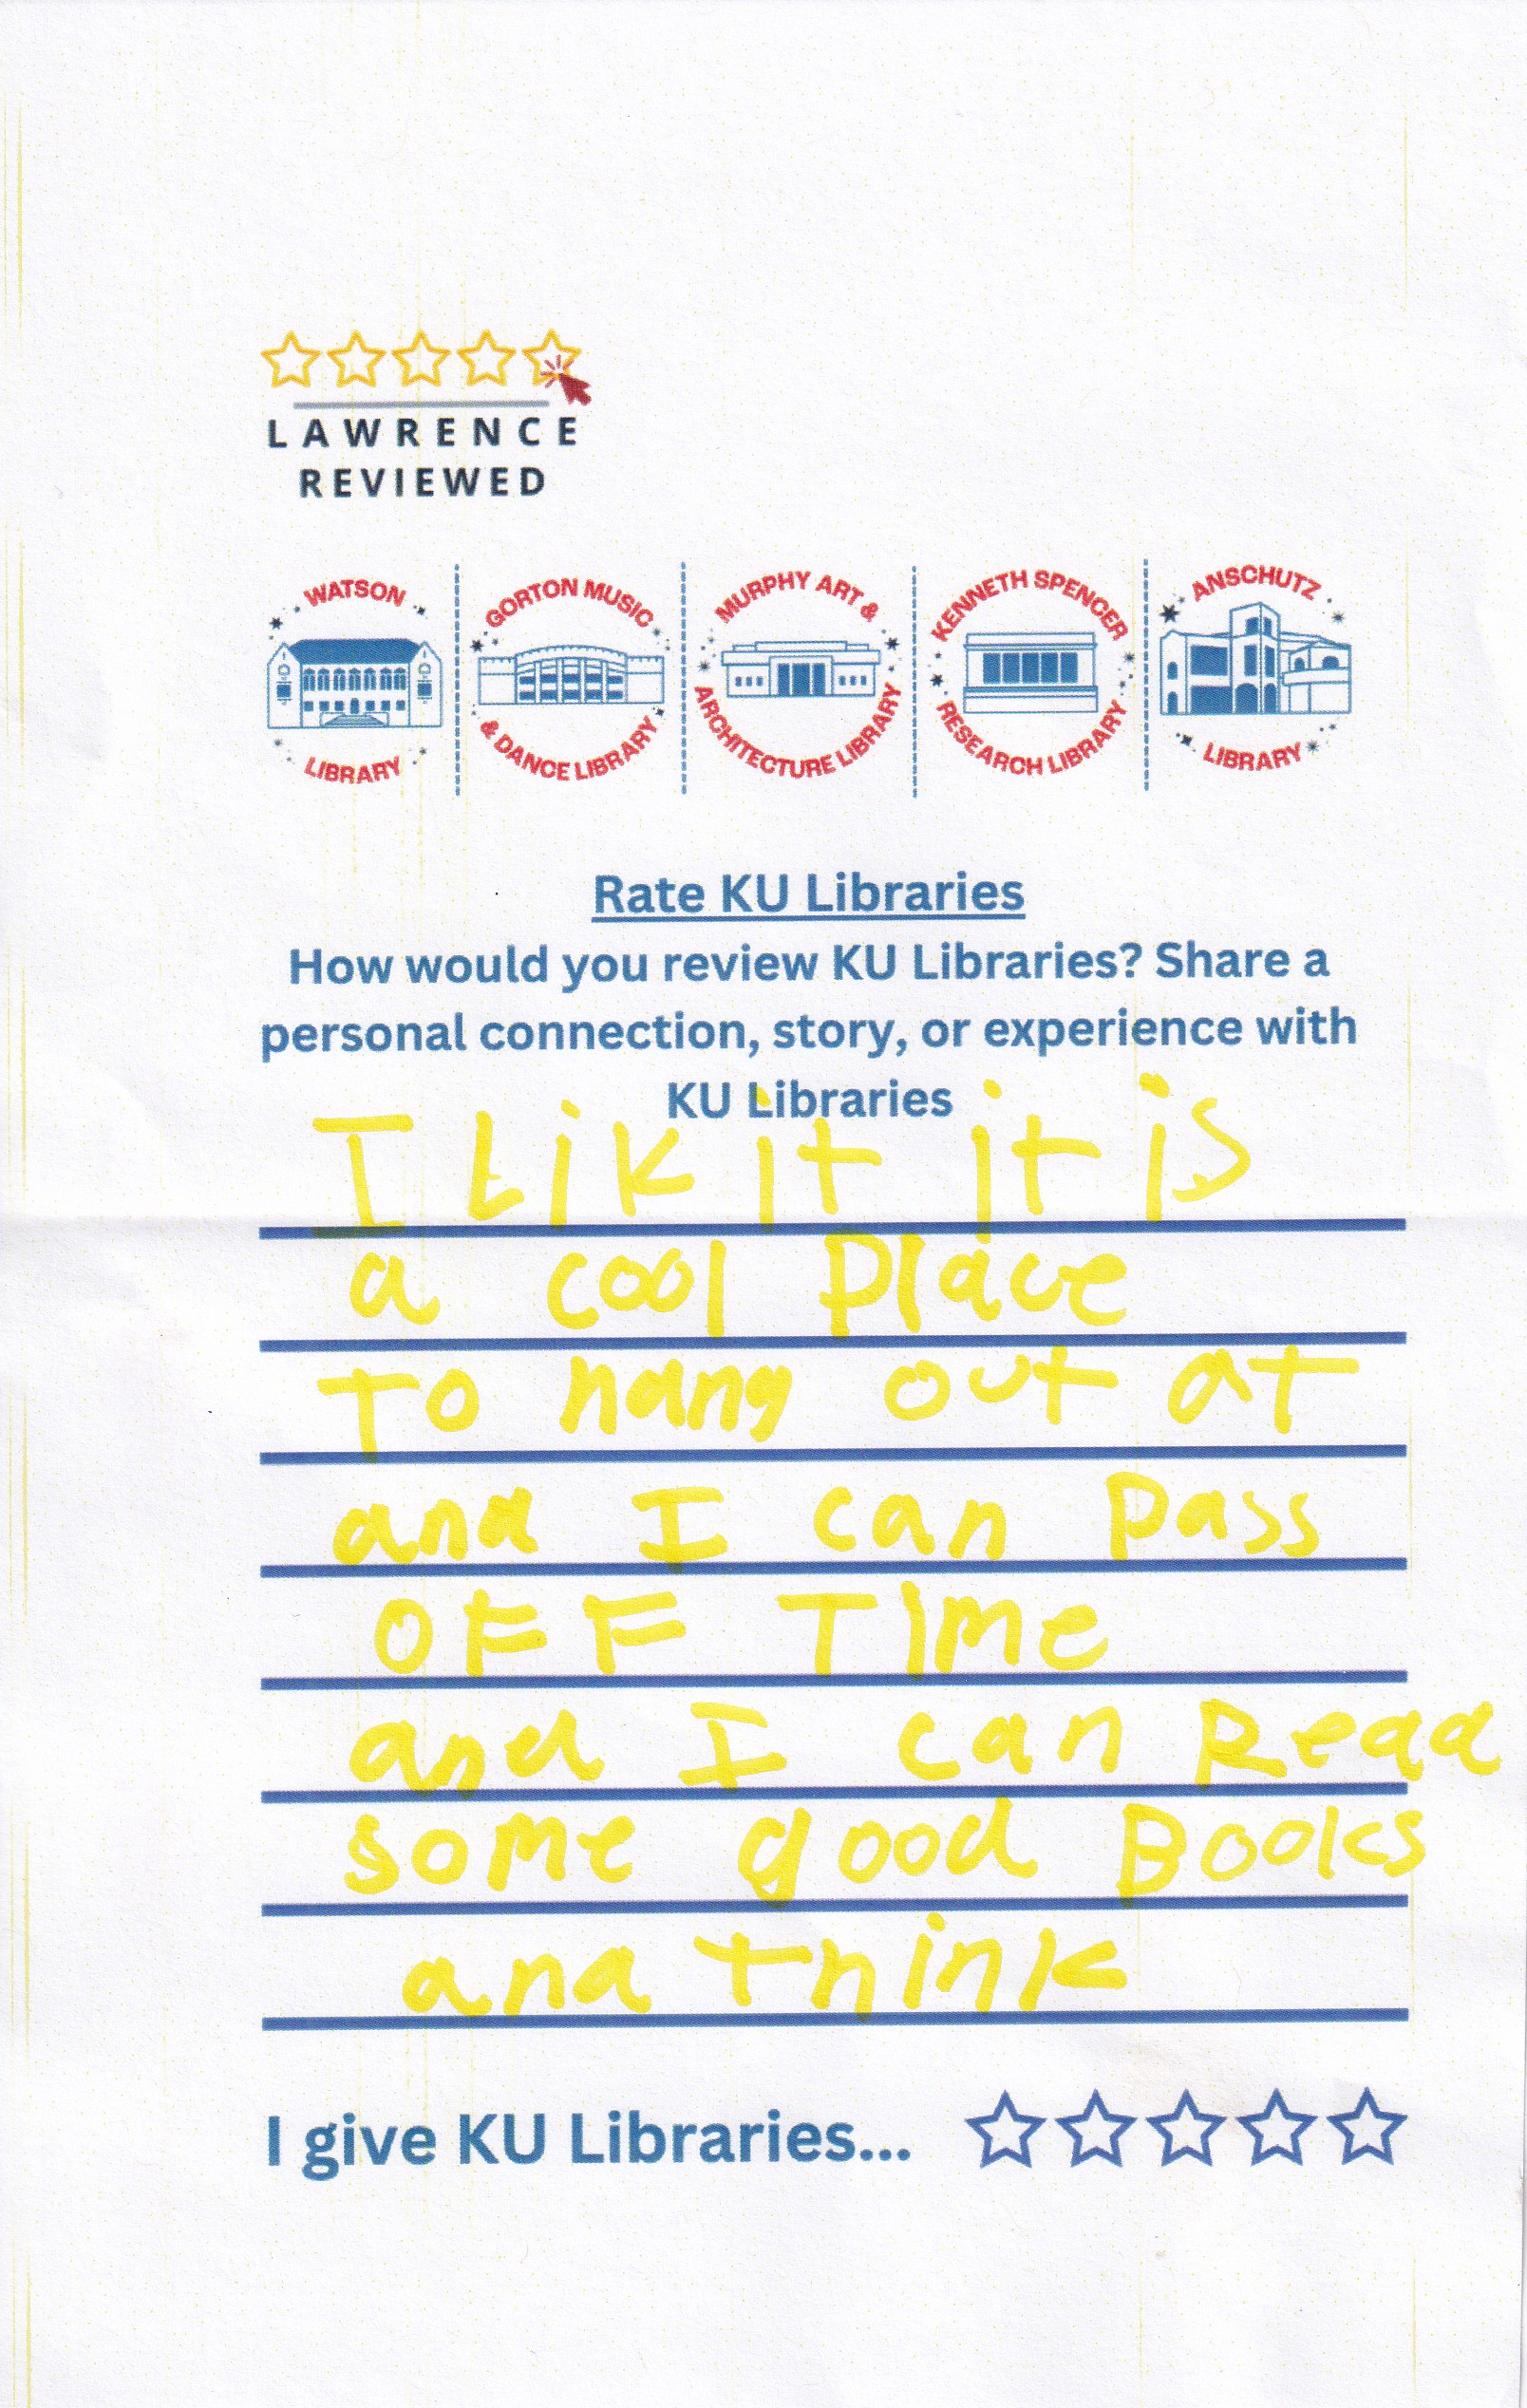 LAWRENCE
REVIEWED
WATSON LIBRARY
GORTON MUSIC & DANCE LIBRARY
MURPHY ART & ARCHITECTURE LIBRARY
KENNETH SPENCER RESEARCH LIBRARY
ANSCHUTZ LIBRARY
Rate KU Libraries
How would you review KU Libraries? Share a
personal connection, story, or experience with
KU Libraries
I Lik it it is
a cool place
TO hang out at
and I can pass
OFF TIME
and I can Read
some good Books
and think
I give KU Libraries...